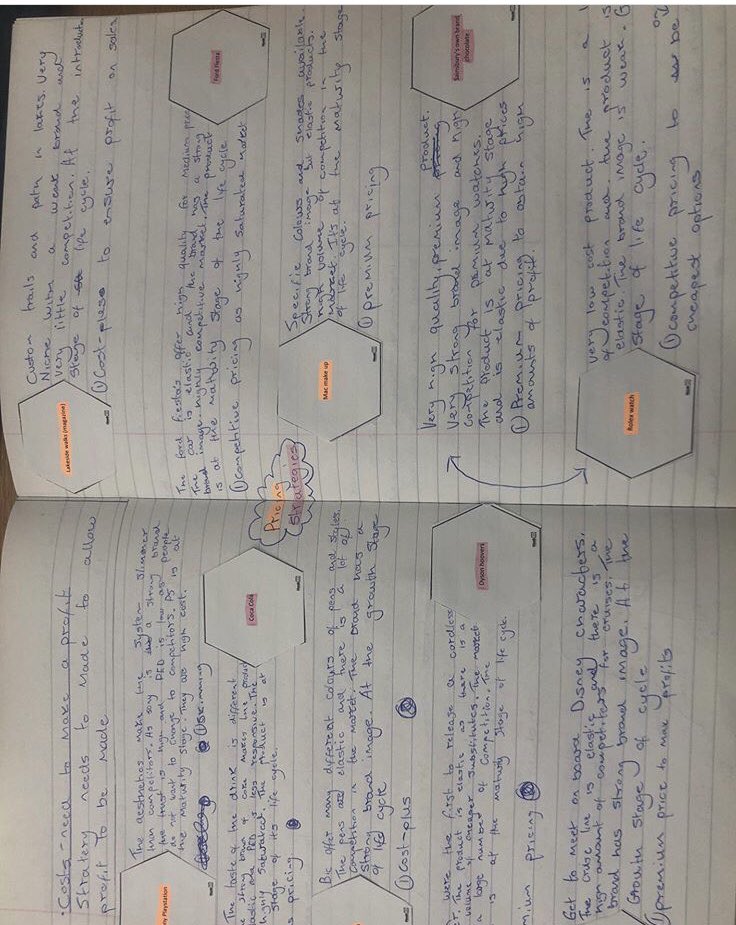 • Costs - need to make a profit
Stratery needs to made to allow
profit to be made
y Playstation
The aesthetics make the system slimmer
than competitors. As sony is a strong brand
the trust is high and PED is low as people
do not want to change to competitors. PS is at
the maturity stage. They as high cost.
① Skimming
Coca Cola
The taste of the drink is different
strong brand of coke makes the produ
elastic and PED is less responsive. The
highly saturated. The product is at
stage of its life cycle.
s pricing
Bic offer many different colours of pens and styles.
The pens are elastic and there is a lot of
competition in the market. The brand has a
strong brand image. At the growth stage
of life cycle
① Cost-plus
Dyson hoovers
were the first to release a cordless
er. The product is elastic as there is a
volume of cheaper substitutes. The market
a large number of competition. The
is at the maturity stage of life cycle.
mium pricing
Get to meet on board Disney characters.
The cruise line is elastic and there is a
high amount of competitors for cruises. The
brand has strong brand image. At the
Growth stage of cycle
① premium price to max profits
Pricing
Strategies
Lakeside walks (magazine)
Custom trails and path in lakes. Very
Niche with a weak brand and
very little competition. At the introducti
stage of life cycle.
① Cost-pluss to ensure profit on sales
Ford Fiesta
The ford fiesta's offer high quality for medium pric
The car is elastic and the brand has a strong
brand image. Highly competitive market. The product
is at the maturity stage of the life cycle
① competitive pricing as highly saturated market
Mac make up
Specific colours and shades available.
Strong brand image but elastic products.
High volume of competition in the
market. It's at the maturity stage
of life cycle.
① premium pricing
Sainsbury's own brand
chocolate
Very high quality, premium product.
Very strong brand image and high
competition for premium watches.
The product is at maturity stage
and is elastic due to high prices
① Premium pricing to obtain high
amounts of profit.
Rolex watch
very low cost product. The is a l
of competition and the product is
elastic. The brand image is weak. G
stage of life cycle.
① competitive pricing to be
cheapest options